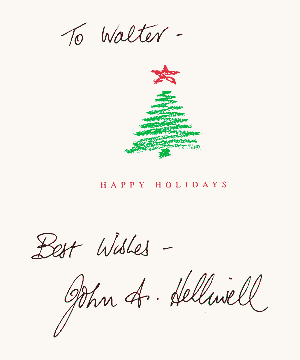 To Walter -
HAPPY HOLIDAYS
Best Wishes -
John A. Helliwell